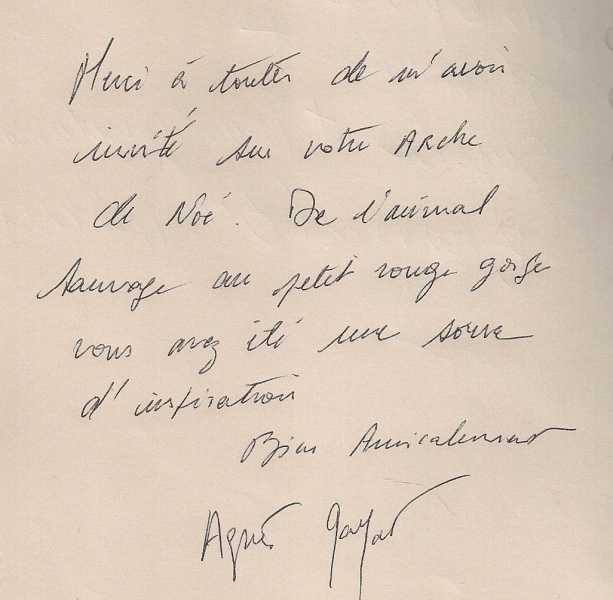 Merci à toutes de m'avoir
invité sur votre Arche
de Noé. De l'animal
sauvage au petit rouge gorge
vous avez été une source
d'inspiration
Bien Amicalement
Agnès